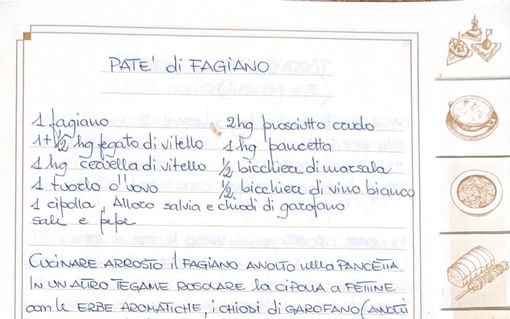 PATE' di FAGIANO
1 fagiano 2hg prosciutto crudo
1+½ hg fegato di vitello 1 hg pancetta
1 hg cervella di vitello ½ bicchiere di marsala
1 tuorlo d'uovo ½ bicchiere di vino bianco
1 cipolla, Alloro salvia e chiodi di garofano
sale e pepe
CUCINARE ARROSTO il FAGIANO AVVOLTO nella PANCETTA.
IN UN ALTRO TEGAME ROSOLARE la CIPOLLA A FETTINE
con le ERBE AROMATICHE, i CHIODI di GAROFANO (AVVOLTI